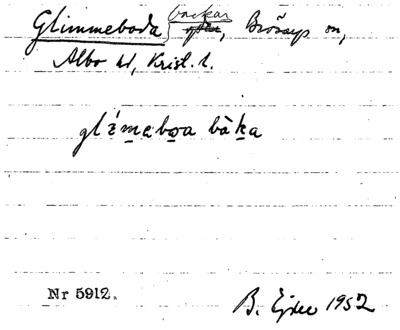 Glimmeboda backar, Brösarps sn,
Albo hd, Krist. l.
glimeboa bàka
Nr 5912.
B. Ejder 1952